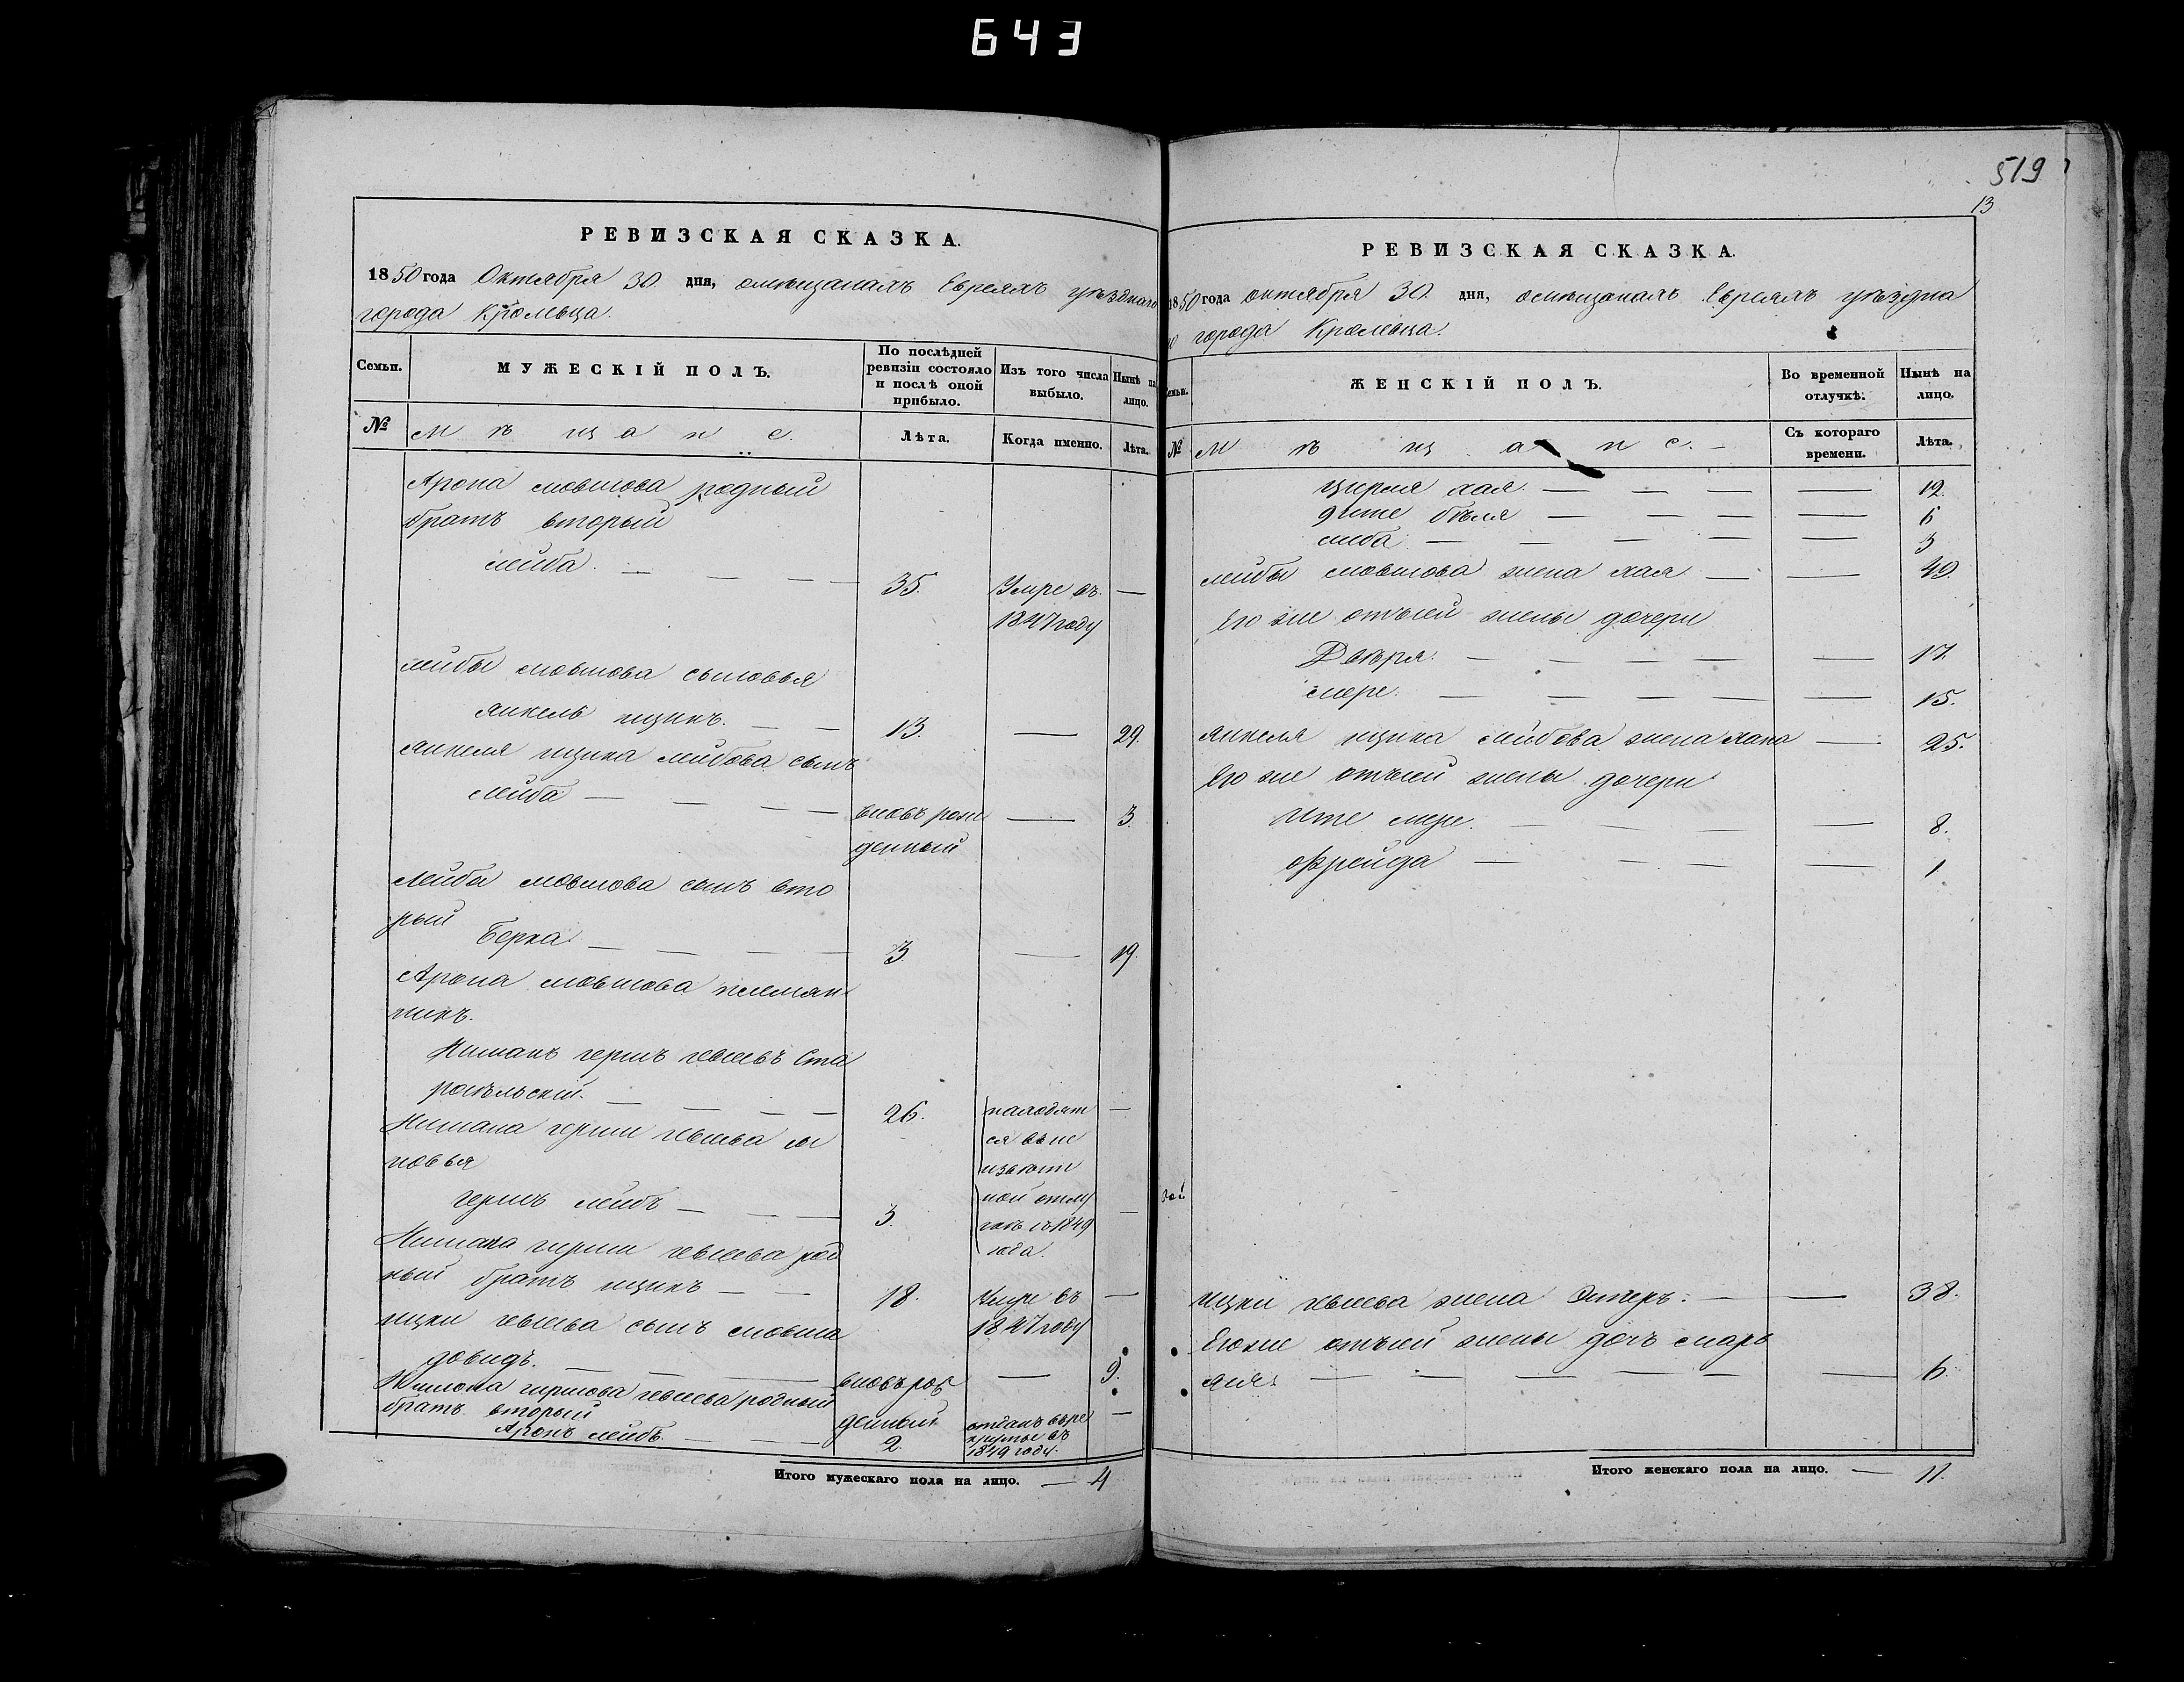 643
РЕВИЗСКАЯ СКАЗКА.
1850 года Октября 30. дня, омѣщанахъ Евреяхъ уѣзднаго
города Кролевца.
Семьи.
МУЖЕСКІЙ ПОЛЪ.
По послѣдней
ревизіи состояло
и послѣ оной
прибыло.
Изъ того числа
выбыло.
Нынѣ на
лицо.
№
Мѣщане.
Лѣта.
Когда именно.
Лѣта.
Арона мовшова родный
братъ вторый
лейба. — 35. Умре въ —
1847 году
лейбы мовшова сыновья
янкель ицикъ. — 13. — 29.
янкеля ицика лейбова сынъ
лейба — вновь рож — 3.
денный
Лейбы мовшова сынъ вто
рый
Берка — 3. — 19.
Арона мовшова племян
никъ.
герш Ста
росельскій. — 26. находят —
ся въ не
извѣст
новья
герш лейб — 3. ной отлу —
чкѣ съ 1849
года.
род
ный братъ ицикъ — 18. Умре въ —
1847 году
ицки сынъ мовша
довидъ. — вновь рож — 9.
денный
родный
братъ вторый
Аронъ лейбъ. — 2. отданъ въ ре —
круты въ
1849 году.
Итого мужескаго пола на лицо. — 4
519
13
РЕВИЗСКАЯ СКАЗКА.
1850 года октября 30. дня, омѣщанахъ Евреяхъ уѣздна
го города Кролевца.
Семьи.
ЖЕНСКІЙ ПОЛЪ.
Во временной
отлучкѣ.
Нынѣ на
лицо.
№
Мѣщане. —
Съ котораго
времени.
Лѣта.
цирля хая. — 12.
бѣля — 6
либа — 3
лейбы мовшова жена хая — 49.
Его же отъией жены дочери
Двѣря. — 17.
мере. — 15.
янкеля ицика лейбова жена хана — 25.
Его же отъией жены дочери
мере. — 8.
фрейда — 1
ицки жена Эстеръ. — 38.
Его же отъией жены дочь марь
яся. — 6.
Итого женскаго пола на лицо. — 11.